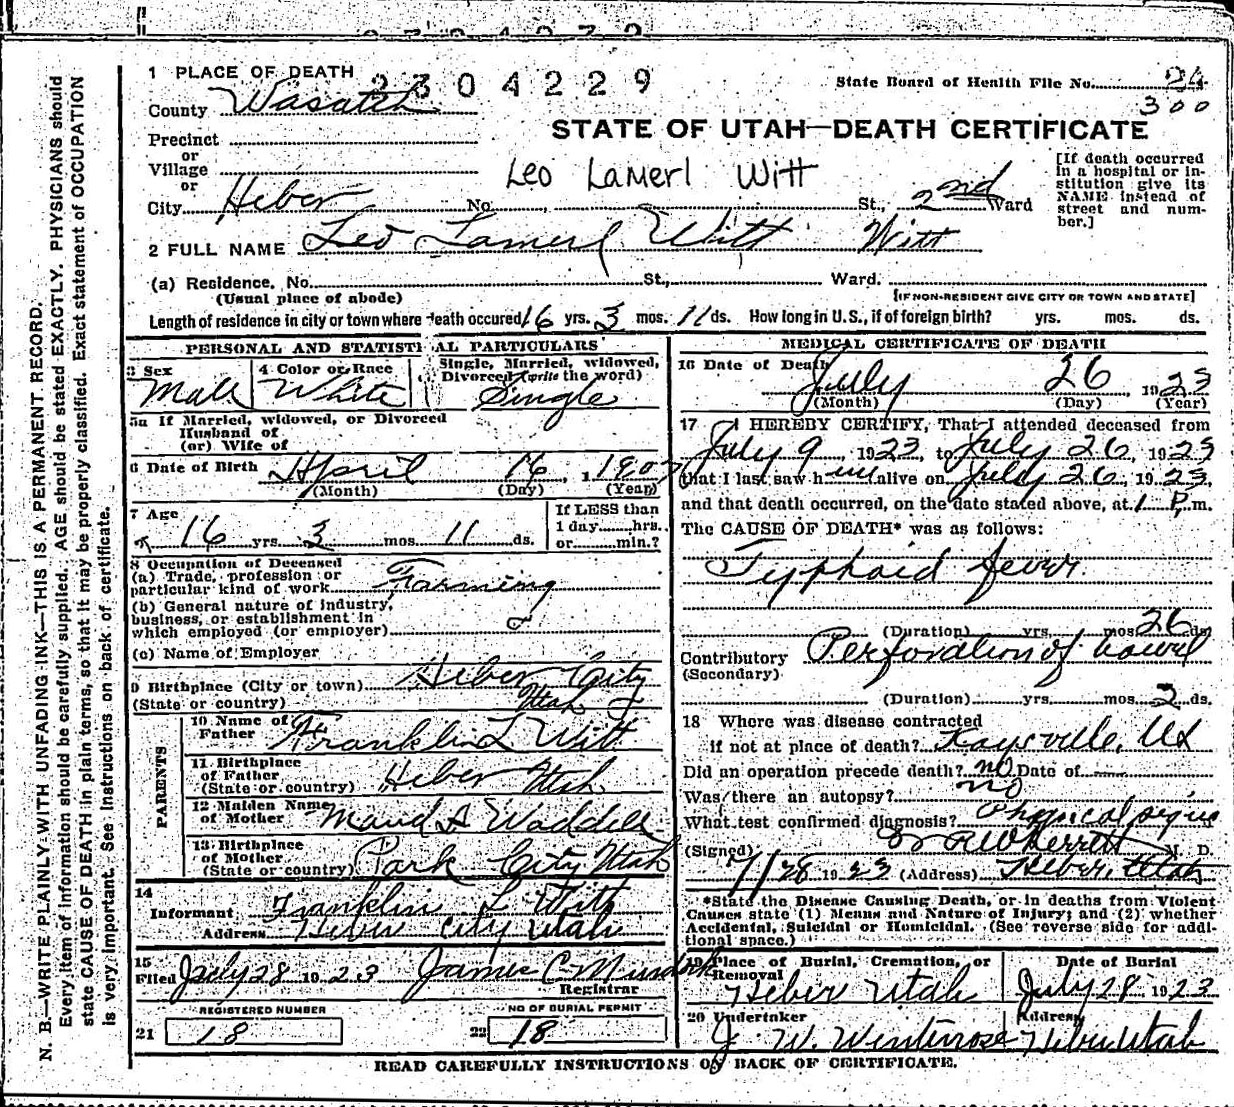 2304229
1 PLACE OF DEATH
State Board of Health File No. 24
300
County Wasatch
STATE OF UTAH—DEATH CERTIFICATE
Precinct
or
Village
or
Leo LaMerl Witt
[If death occurred in a hospital or institution give its NAME instead of street and number.]
City Heber No. St., 2nd Ward
2 FULL NAME Leo Lamerl Witt Witt
(a) Residence. No. St., Ward.
(Usual place of abode) [IF NON-RESIDENT GIVE CITY OR TOWN AND STATE]
Length of residence in city or town where death occured 16 yrs. 3 mos. 11 ds. How long in U.S., if of foreign birth? yrs. mos. ds.
PERSONAL AND STATISTICAL PARTICULARS
3 Sex Male
4 Color or Race White
5 Single, Married, widowed, Divorced (write the word) Single
5a If Married, widowed, or Divorced
Husband of
(or) Wife of
6 Date of Birth April 16, 1907
(Month) (Day) (Year)
7 Age 16 yrs. 3 mos. 11 ds.
If LESS than
1 day hrs.
or min.?
8 Occupation of Deceased
(a) Trade, profession or
particular kind of work Farming
(b) General nature of industry,
business, or establishment in
which employed (or employer)
(c) Name of Employer
9 Birthplace (City or town) Heber City
(State or country) Utah
PARENTS
10 Name of Father Franklin L Witt
11 Birthplace of Father (State or country) Heber Utah
12 Maiden Name of Mother Maud A Waddell
13 Birthplace of Mother (State or country) Park City Utah
14
Informant Franklin L Witt
Address Heber City Utah
15
Filed July 28 1923 James C Murdock
Registrar
REGISTERED NUMBER
21 18
NO OF BURIAL PERMIT
22 18
MEDICAL CERTIFICATE OF DEATH
16 Date of Death July 26, 1923
(Month) (Day) (Year)
17 I HEREBY CERTIFY, That I attended deceased from
July 9, 1923, to July 26, 1923
that I last saw him alive on July 26, 1923,
and that death occurred, on the date stated above, at 1 P. m.
The CAUSE OF DEATH* was as follows:
Typhoid fever.
(Duration) yrs. mos. 26 ds.
Contributory Perforation of bowel
(Secondary)
(Duration) yrs. mos. 2 ds.
18 Where was disease contracted
if not at place of death? Kaysville, Ut
Did an operation precede death? no Date of
Was there an autopsy? no
What test confirmed diagnosis? Physical signs
(Signed) R Wherritt M. D.
7/28 1923 (Address) Heber, Utah
*State the Disease Causing Death, or in deaths from Violent
Causes state (1) Means and Nature of Injury; and (2) whether
Accidental, Suicidal or Homicidal. (See reverse side for additional space.)
19 Place of Burial, Cremation, or Removal
Heber Utah
Date of Burial
July 28 1923
20 Undertaker
J. W. Winterrose
Address
Heber Utah
READ CAREFULLY INSTRUCTIONS ON BACK OF CERTIFICATE.
N. B.—WRITE PLAINLY WITH UNFADING INK—THIS IS A PERMANENT RECORD.
Every item of Information should be carefully supplied. AGE should be stated EXACTLY. PHYSICIANS should
state CAUSE OF DEATH in plain terms, so that it may be properly classified. Exact statement of OCCUPATION
is very important. See instructions on back of certificate.